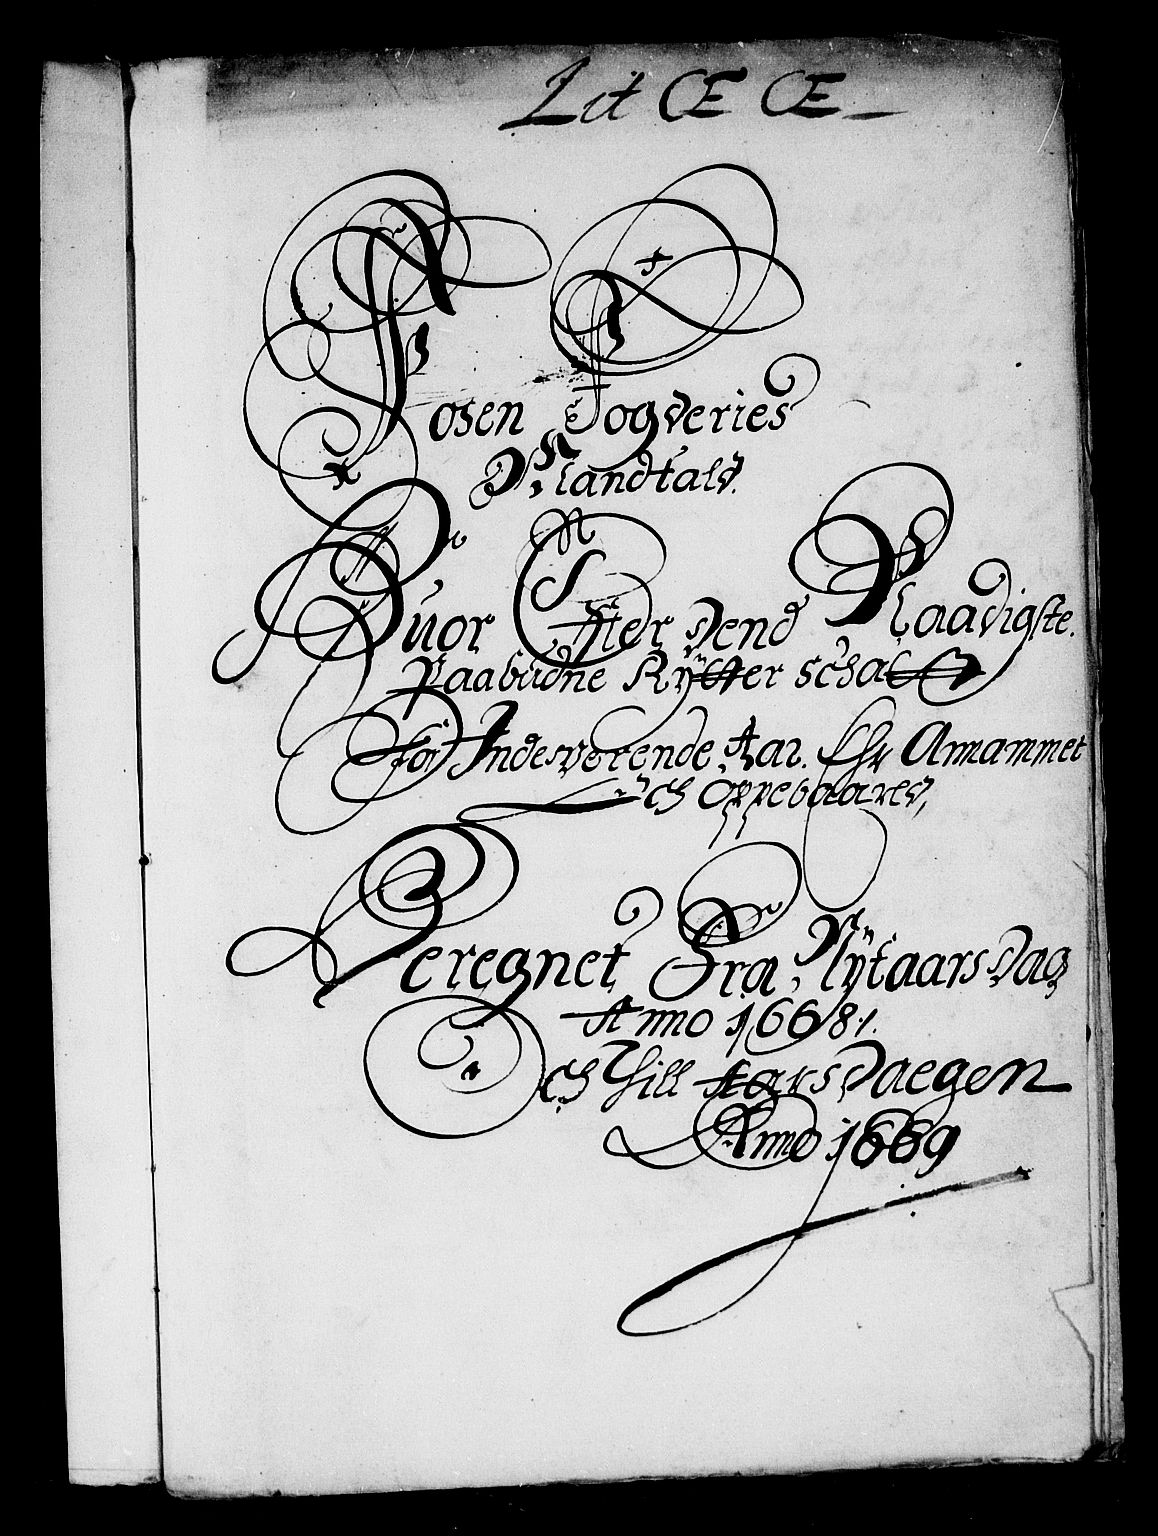 Lit Œ Œ
Fosen Fogderies
Mandtals.
Huor Effter dend Naadigste.
Paabudne Rÿtter schatt
for Indeverende Aar. Ehr Annammet
Och Oppebaaret,
Beregnet Fra Nÿtaarsdag
Anno 1668.
Och Thill Aarsdaegen
Anno 1669